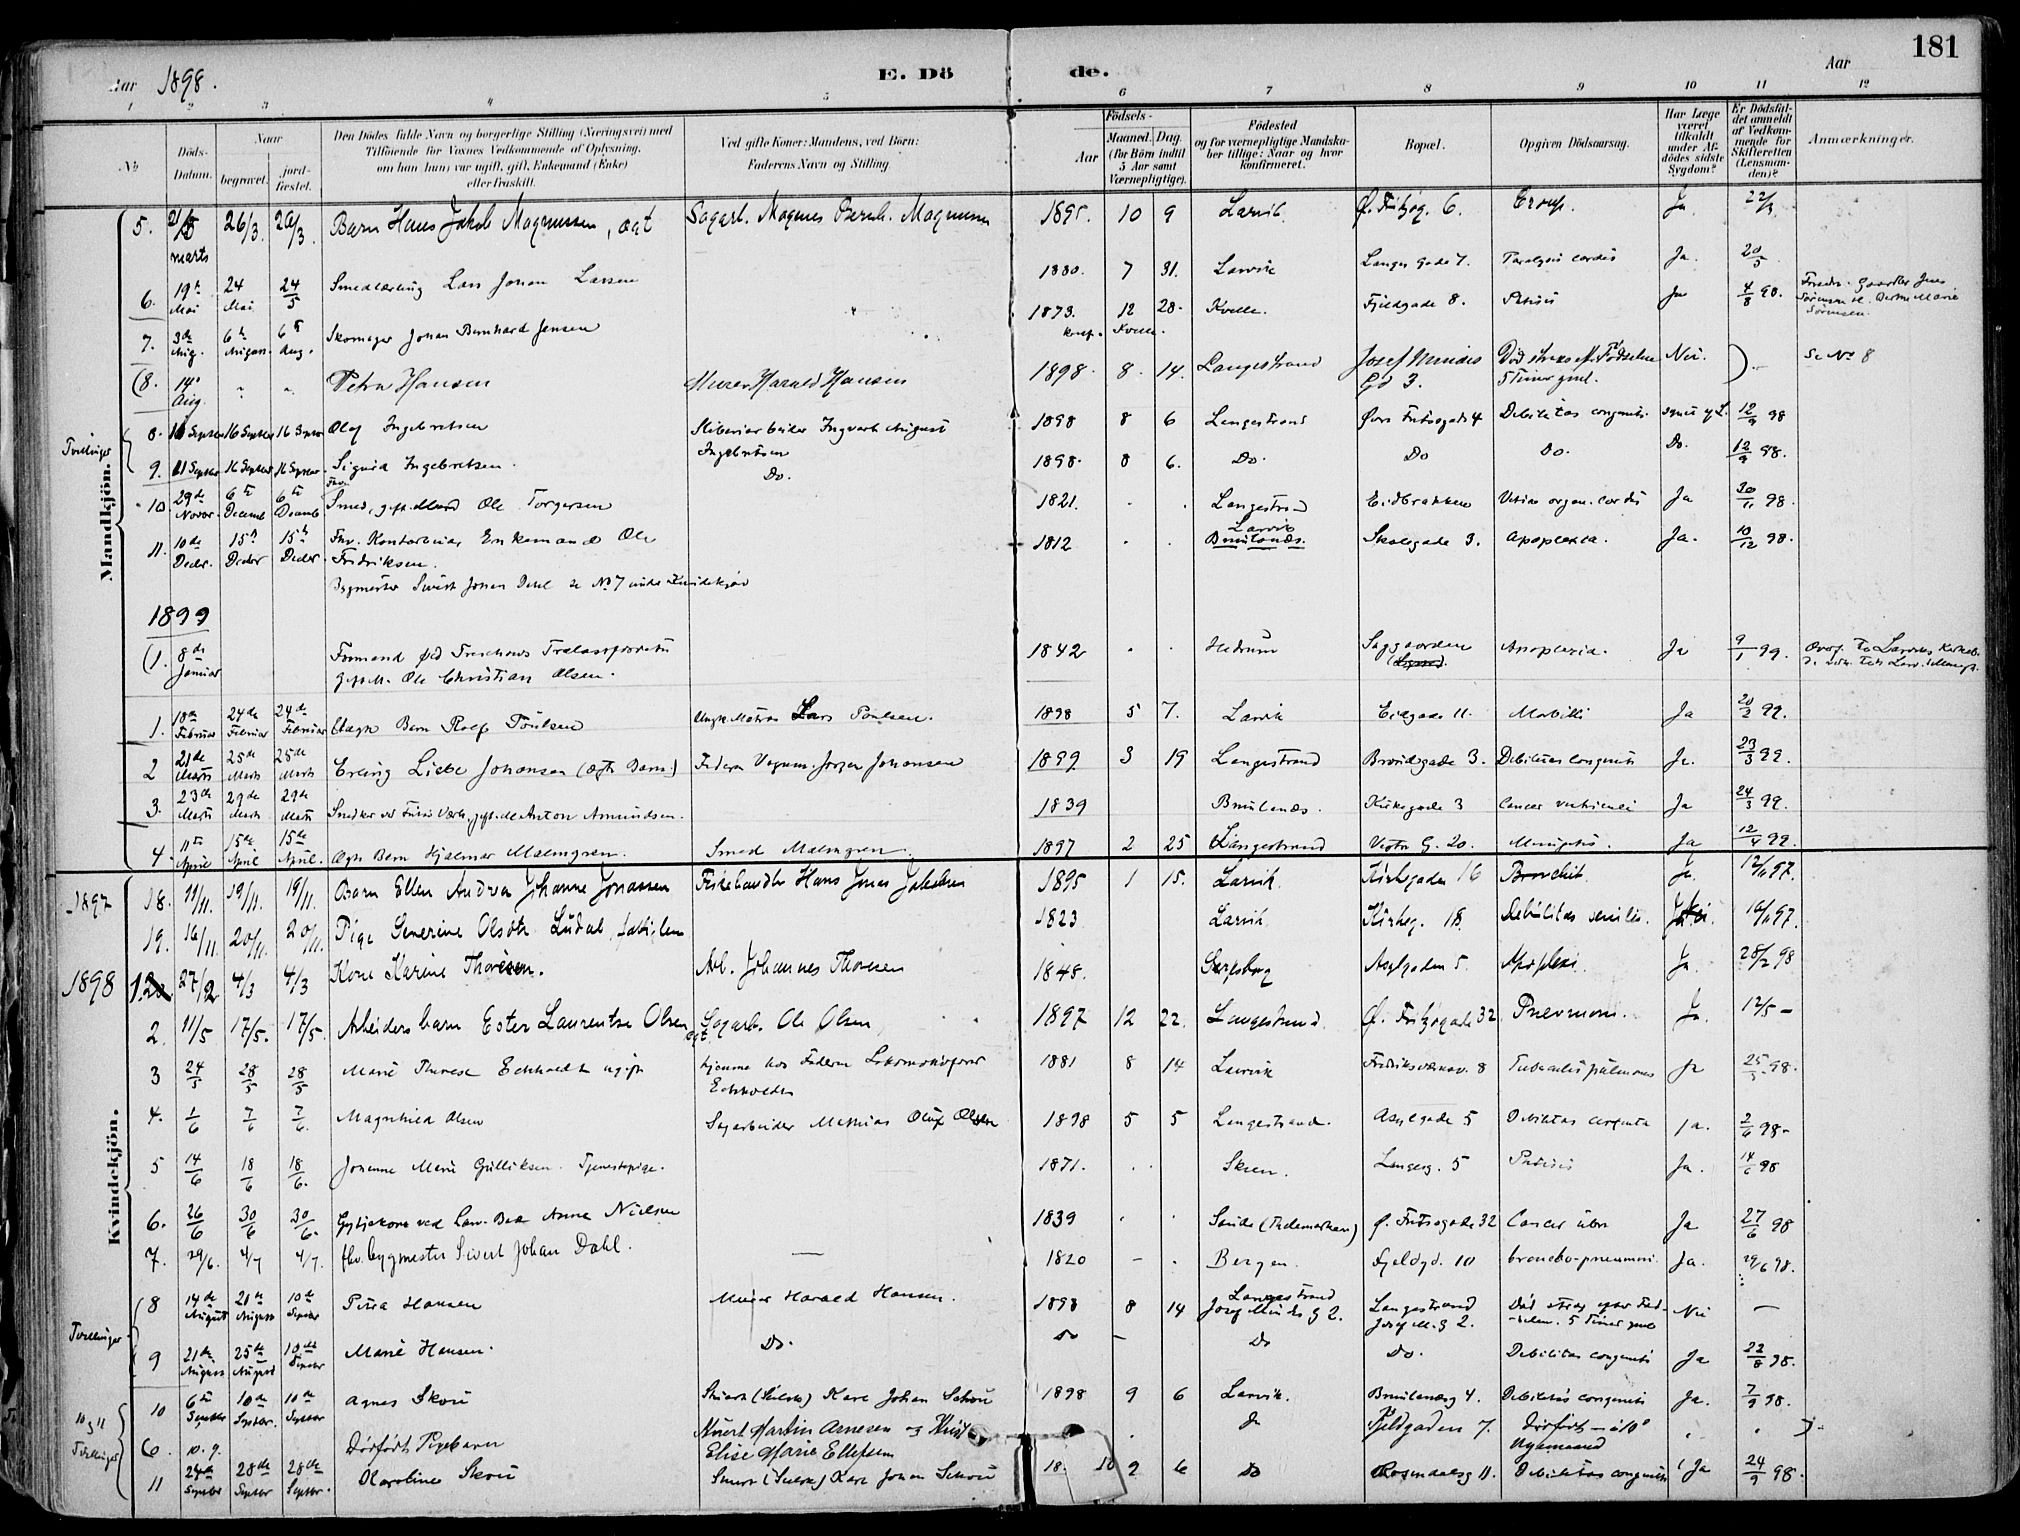 Aar 1898. E. Döde. Aar 181
1 2 3 4 5 6 7 8 9 10 11 12
No. Döds-Datum. Naar begravet. jordfæstet. Den Dödes fulde Navn og borgerlige Stilling (Næringsvei) med Tilföiende for Voxnes Vedkommende af Oplysning, om han (hun) var ugift, gift, Enkemand (Enke) eller fraskilt. Ved gifte Koner: Mandens, ved Börn: Faderens Navn og Stilling. Födsels- Aar Maaned. Dag. (for Börn indtil 5 Aar samt Værnepligtige). Födested og for værnepligtige Mandskaber tillige: Naar og hvor konfirmeret. Bopæl. Opgiven Dödsaarsag. Har Læge været tilkaldt under Afdödes sidste Sygdom? Er Dödsfaldet anmeldt af Vedkommende for Skifteretten (Lensmanden)? Anmærkninger.
Mandkjön.
5. 21/3 marts 26/3. 26/3. Barn Hans Jakob Magnussen, ægt Sagarb. Magnus Bernh. Magnussen 1895. 10 9 Larvik. Ø. Fritzøg. 6. Croup. Ja 22/3
6. 19de Mai 24 Mai 24/5 Smedlærling Lars Johan Larsen 1880. 7 31. Larvik Langes Gade 7. Paralysis cordis Ja. 20/5
7. 3de Aug. 6te August 6te Aug. Skomager Johan Bernhard Jensen 1873. 12 28. Kvelle. Fjeldgade 8. Phthisis Ja 4/8 98.
konf. Kvelle.
(8. 14 Aug. " " Petra Hansen Murer Harald Hansen 1898. 8. 14. Langestrand Josef Mindes Gd 3. Död straks eft. Födselen 5 Timer gml. Nei. ) — Se No 8
Tvillinger
8. 11 Septbr 16 Septbr 16 Septbr Olaf Ingebretsen Sliberiarbeider Ingvart August Ingebretsen 1898 8 6 Langestrand Øvre Fritzøgade 4 Debilitas congenita 12/9 98
9. 11 Septbr 16 Septbr 16 Septbr. Sigurd Ingebretsen. Do. 1898. 8 6. Do. Do Do. Do. 12/9 98.
10. 29de Novbr. 6te Decemb 6te Decemb Fhv. Smed, gift Mand Ole Torgersen 1821. Langestrand Eidbrakken Vitium organ. cordis Ja 30/11 98.
11. 10de Decbr. 15de Decbr 15de Decbr. Fhv. Kontorbud, Enkemand Ole Fridriksen. 1812 Larvik Brunlanæs. Skolegade 3. Apoplexia. Ja. 10/12 98.
Bygmester Sivert Johan Dahl se No 7 under Kvindekjön
1899
(1. 8de Januar Formand ved Treschows Trælastforretn. gift M. Ole Christian Olsen. 1842 Hedrum Saggaarden Apoplexia. Ja 9/1 99.
1. 18de Februar 24de Februar 24de Februar Uægte Barn Rolf Poulsen Ungk. Matros Lars Poulsen. 1898 5 7. Larvik Eidgade 11. Morbilli Ja 20/2 99.
2 21de Marts 25de Marts 25de Marts Erling Johansen (ægte Barn) Faderen Vognm. Jørgen Johansen 1899 3 19 Langestrand Brøndsgade 3. Debilitas congenita Ja. 23/3 99.
3. 23de Marts 29de Marts 29de Marts Snedker ved Fritzø Værk, gift M. Anton Amundsen. 1839 Brunlanæs. Kirkegade 3 Cancer ventriculi Ja 24/3 99.
4. 11te April 15de April 15de April. Ægte Barn Hjalmar Malmgren. Smed Malmgren. 1897 2 25 Langestrand Vestre G. 20. Meningitis. Ja 12/4 99.
Kvindekjön.
1897 18. 11/11. 19/11. 19/11. Barn Ellen Andrea Johanne Jonassen Fiskehandler Hans Jonas Jakobsen 1895 1 15. Larvik. Kirkegaden 16 Bronchit. Ja. 12/11 97.
19. 16/11 20/11. 20/11. Pige Severine Olsdtr. Ludal, fattiglem 1823 Larvik Kirkeg. 18. Debilitas senilis. 16/11 97.
1898 1. 27/2 4/3 4/3 Kone Karine Thoresen. Arb. Johannes Thoresen 1848. Sarpsborg Asylgaden 5. Apoplexi. Ja. 28/2 98
2. 11/5 17/5. 17/5. Arbeidersbarn Ester Laurentse Olsen ægt Sagarb. Ole Olsen 1897 12 22. Langestrand. Ø. Fritzøgade 32 Pneumoni. Ja. 12/5 —
3 24/5 28/5 28/5 Marie Therese Eckholdt ugift hjemme hos Faderen Lokomotivfører Eckholdt 1881 8 14 Larvik Fredriksværnsv. 8 Tuberculosis pulmonum Ja 25/5 98.
4. 1/6 7/6 7/6. Magnhild Olsen Sagarbeider Mathias Oluf Olsen 1898 5 5 Langestrand. Asylgade 5 Debilitas congenita Ja. 2/6 98.
5 14/6 18/6 18/6. Johanne Marie Gulliksen. Tjenestepige. 1871. Skien. Langesg. 5 Phthisis Ja. 14/6 98
6. 26/6 30/6 30/6. Anne Nielsen 1839 Saude (Thelemarken) Ø. Fritzøgade 32 Cancer uteri Ja 27/6 98
7. 29/6. 4/7 4/7. fhv. bygmester Sivert Johan Dahl. — 1820 — Bergen. Fjeldgd. 10 broncho-pneumoni. Ja. 29/6 98.
Tvillinger
(8 14de August 21de August 10de Septbr Petra Hansen Murer Harald Hansen. 1898 8 14 Langestrand Josef Mindes g 2. Langestrand Josef M. g 2. Död strax efter Födselen. 5 Timer gml Nei —
9 21de August 25de August 10de Septbr Marie Hansen. Do. Do — Do Do. Debilitas congenita Ja 22/8 98.
10 og 11 Tvillinger
10 6te Septbr 10de Septbr. 10de Septbr Agnes Skou Karl Johan Schou 1898 9 6 Larvik. Brunlanæsg 4. Debilitas congenita Ja. 7/9 98.
6. 10. 9. Dödfödt Pigebarn Martin Arnesen og Elise Marie Ellefsen Do Fjeldgaden 7. Dödfödt
11 24de Septbr 28de Septbr 28de Septbr. Karoline Skou Karl Johan Schou 18. 9 6 Do Rosendalsg 11. Debilitas congenita Ja 24/9 98.